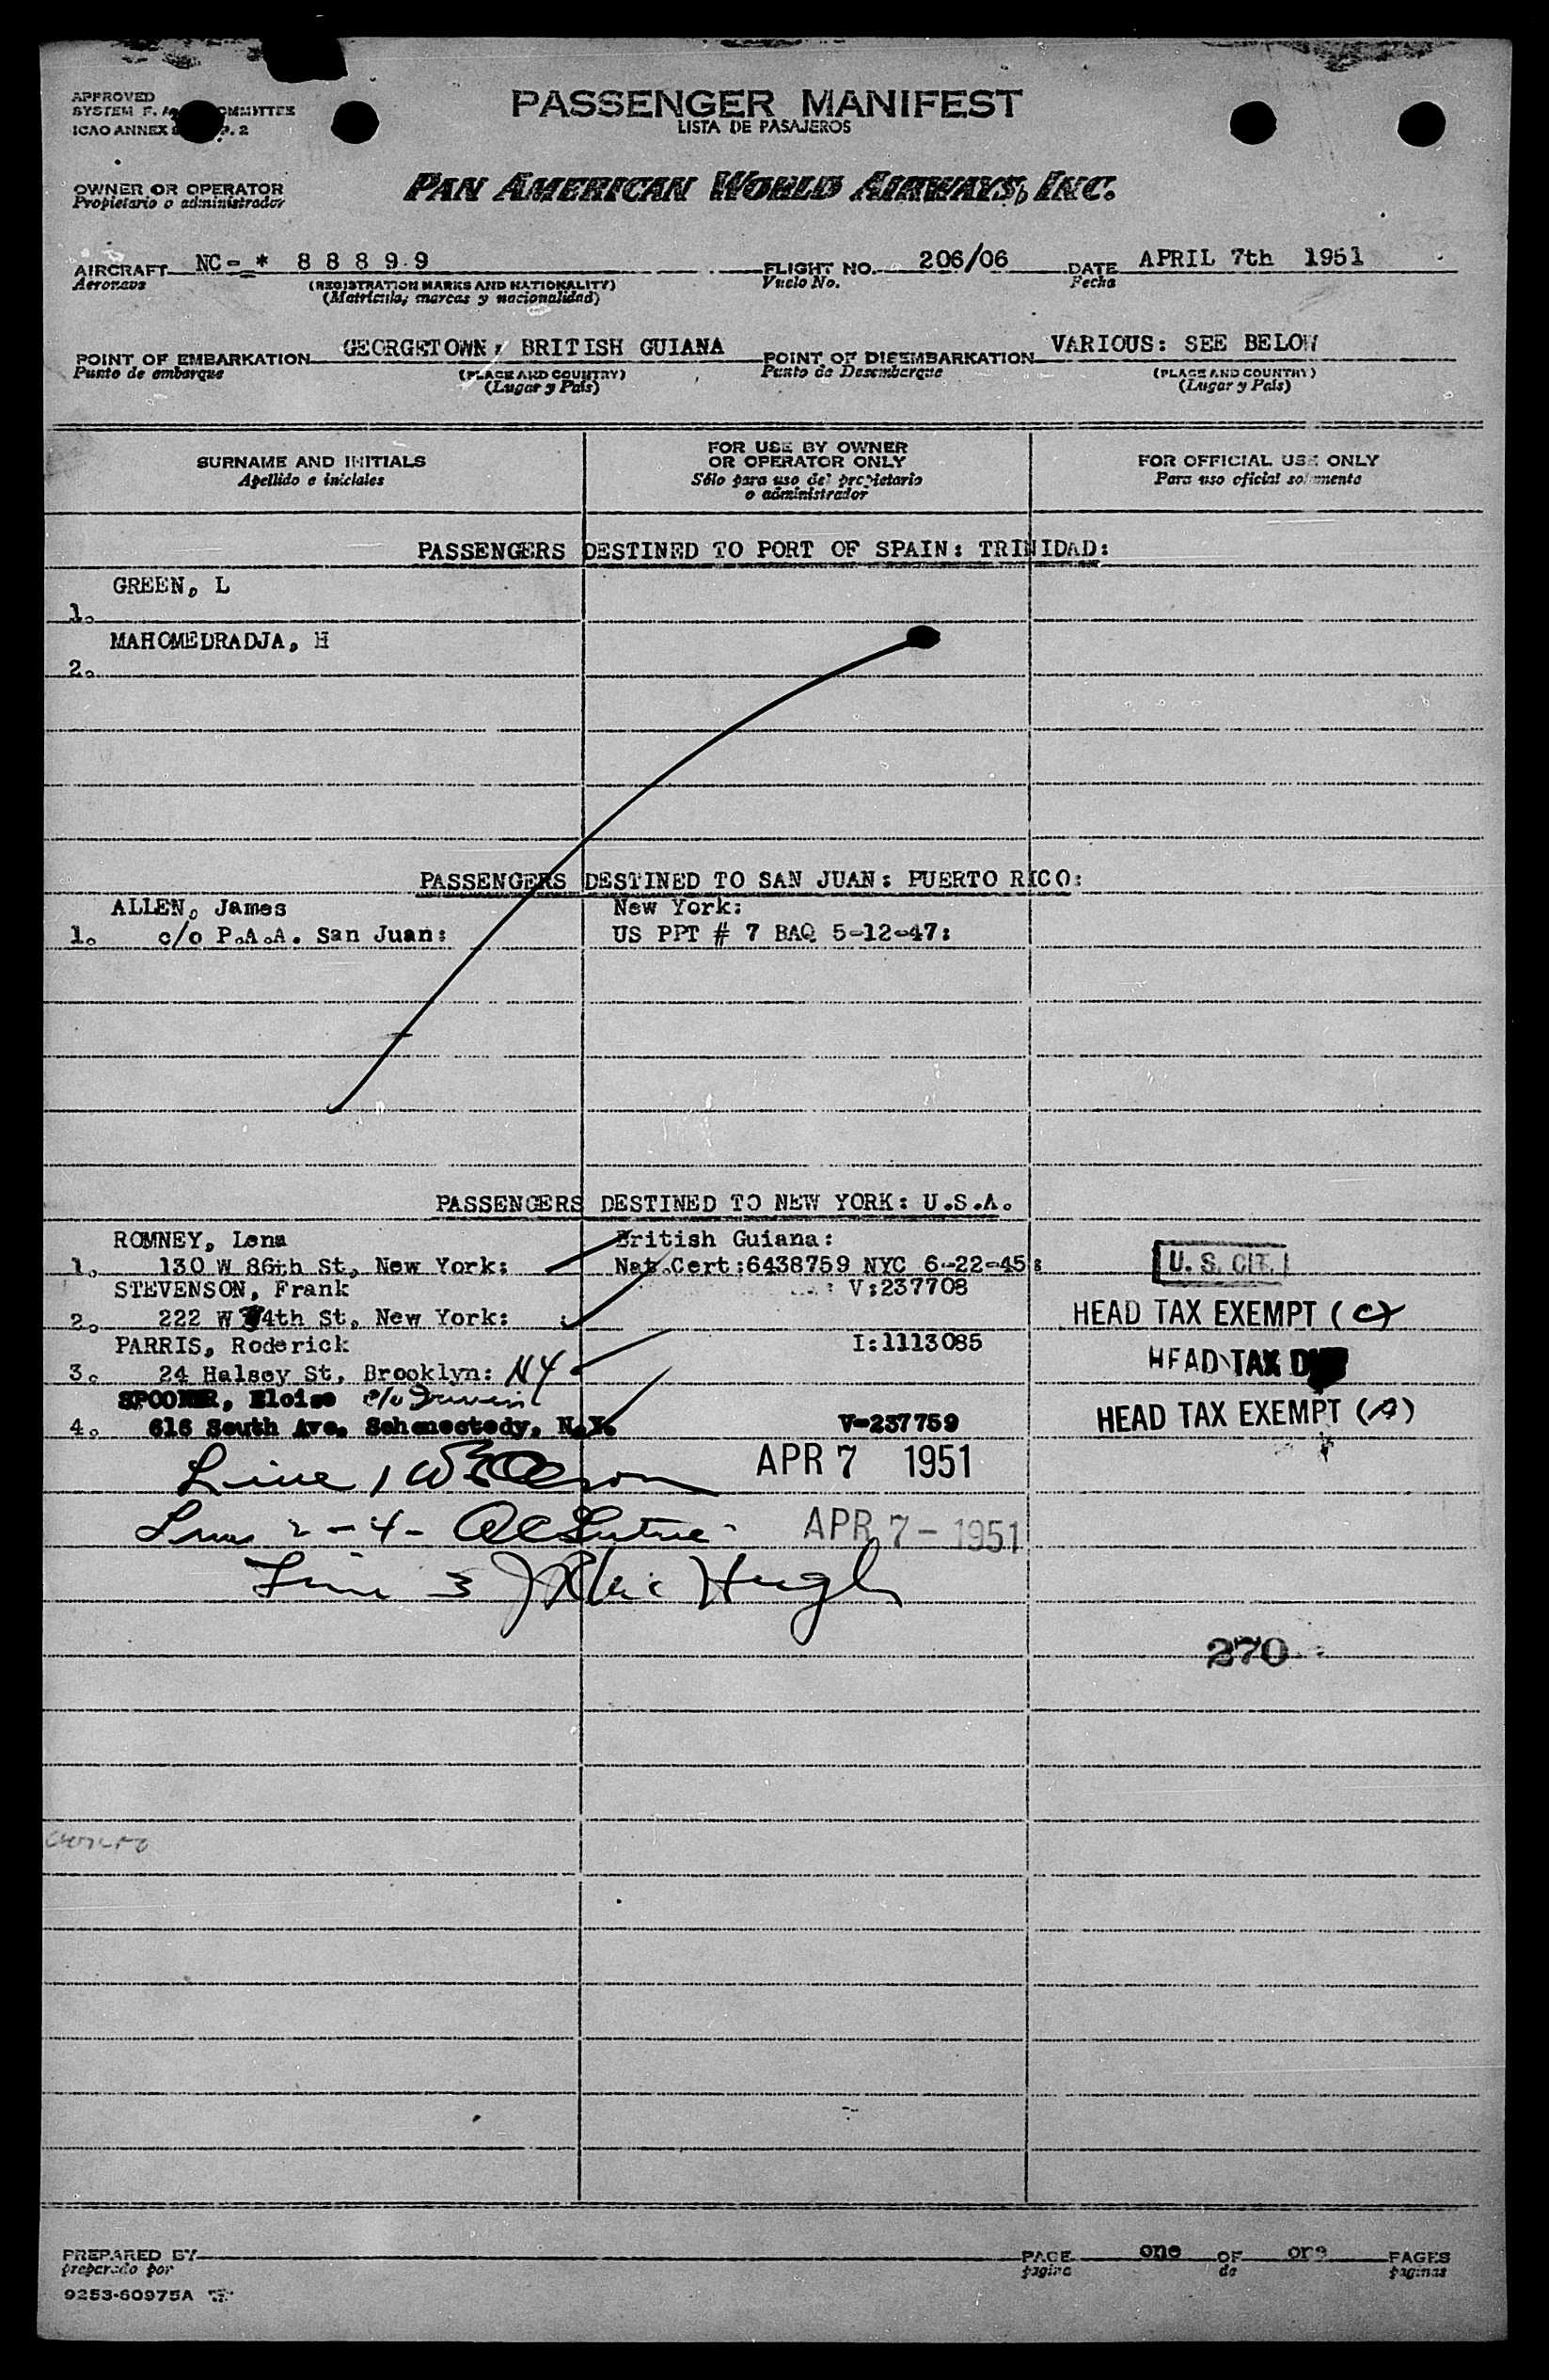 APPROVED
SYSTEM F. COMMITTEE
ICAO ANNEX 2
PASSENGER MANIFEST
LISTA DE PASAJEROS
OWNER OR OPERATOR
Propietario o administrador
PAN AMERICAN WORLD AIRWAYS, INC.
AIRCRAFT NC-* 88899 FLIGHT NO. 206/06 DATE APRIL 7th 1951
Aeronave (REGISTRATION MARKS AND NATIONALITY) Vuelo No. Fecha
(Matrícula, marcas y nacionalidad)
POINT OF EMBARKATION GEORGETOWN, BRITISH GUIANA POINT OF DISEMBARKATION VARIOUS: SEE BELOW
Punto de embarque (PLACE AND COUNTRY) Punto de Desembarque (PLACE AND COUNTRY)
(Lugar y País) (Lugar y País)
SURNAME AND INITIALS FOR USE BY OWNER OR OPERATOR ONLY FOR OFFICIAL USE ONLY
Apellido e iniciales Sólo para uso del propietario o administrador Para uso oficial solamente
PASSENGERS DESTINED TO PORT OF SPAIN: TRINIDAD:
GREEN, L
1.
MAHOMEDRADJA, H
2.
PASSENGERS DESTINED TO SAN JUAN: PUERTO RICO:
ALLEN, James New York:
1. c/o P.A.A. San Juan: US PPT # 7 BAQ 5-12-47:
PASSENGERS DESTINED TO NEW YORK: U.S.A.
ROMNEY, Lena British Guiana:
1. 130 W 86th St, New York: Nat.Cert:6438759 NYC 6-22-45: U. S. CIT.
STEVENSON, Frank V:237708
2. 222 W 4th St, New York: HEAD TAX EXEMPT (C)
PARRIS, Roderick I:1113085
3. 24 Halsey St, Brooklyn: NY HEAD TAX
SPOONER, Eloise c/o
4. 616 South Ave. Schenectady, N.Y. V-237759 HEAD TAX EXEMPT (A)
Line 1 APR 7 1951
Lines 2-4- APR 7-1951
Line 3
270
PREPARED BY PAGE one OF one PAGES
preparado por página de páginas
9253-60975A